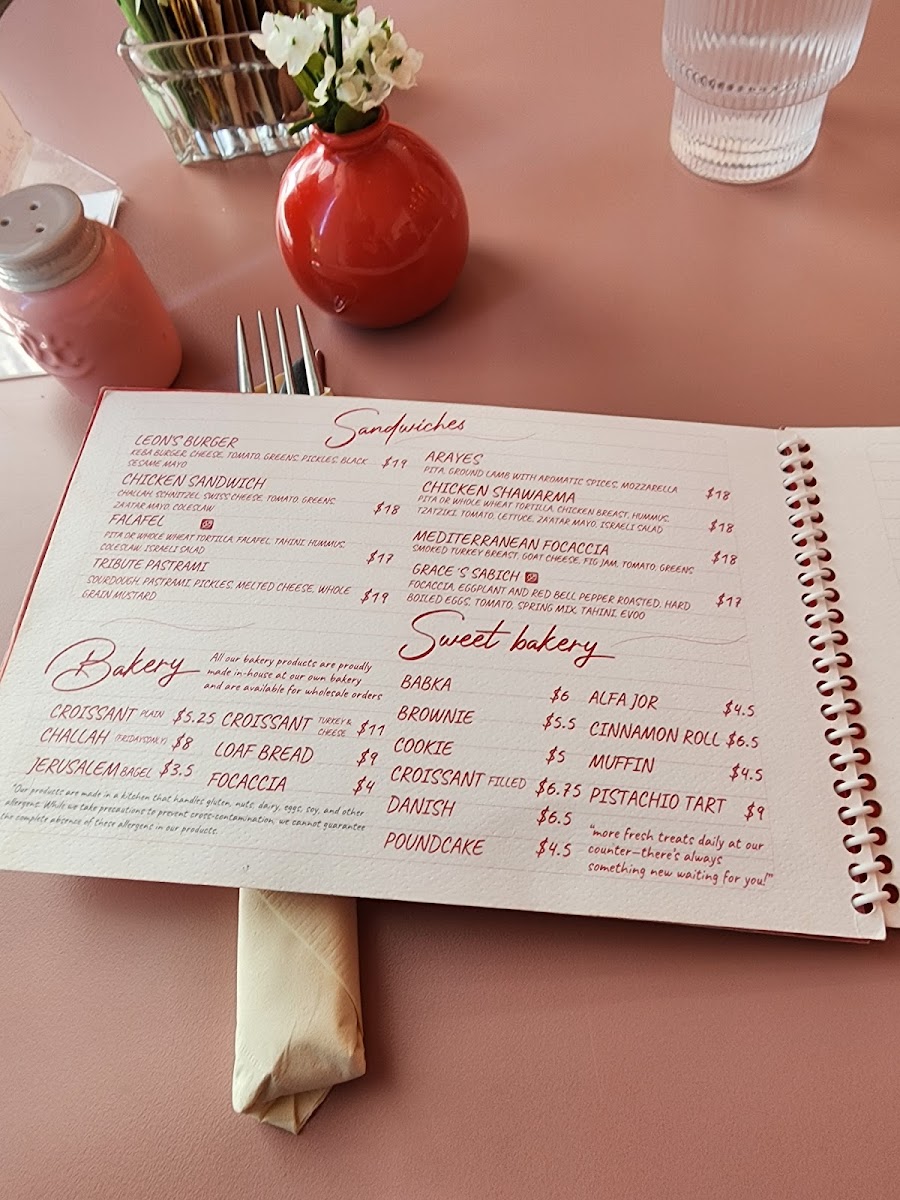 Sandwiches
LEON'S BURGER
KEBA BURGER, CHEESE, TOMATO, GREENS, PICKLES, BLACK
SESAME MAYO
$19
CHICKEN SANDWICH
CHALLAH, SCHNITZEL, SWISS CHEESE, TOMATO, GREENS,
ZA'ATAR MAYO, COLESLAW
$18
FALAFEL
PITA OR WHOLE WHEAT TORTILLA, FALAFEL, TAHINI, HUMMUS,
COLESLAW, ISRAELI SALAD
$17
TRIBUTE PASTRAMI
SOURDOUGH, PASTRAMI, PICKLES, MELTED CHEESE, WHOLE
GRAIN MUSTARD
$19
ARAYES
PITA, GROUND LAMB WITH AROMATIC SPICES, MOZZARELLA
$18
CHICKEN SHAWARMA
PITA OR WHOLE WHEAT TORTILLA, CHICKEN BREAST, HUMMUS,
TZATZIKI, TOMATO, LETTUCE, ZA'ATAR MAYO, ISRAELI SALAD
$18
MEDITERRANEAN FOCACCIA
SMOKED TURKEY BREAST, GOAT CHEESE, FIG JAM, TOMATO, GREENS
$18
GRACE 'S SABICH
FOCACCIA, EGGPLANT AND RED BELL PEPPER ROASTED, HARD
BOILED EGGS, TOMATO, SPRING MIX, TAHINI, EVOO
$17
Bakery
All our bakery products are proudly
made in-house at our own bakery
and are available for wholesale orders
CROISSANT PLAIN $5.25
CHALLAH (FRIDAYS ONLY) $8
JERUSALEM BAGEL $3.5
CROISSANT TURKEY & CHEESE $11
LOAF BREAD $9
FOCACCIA $4
"Our products are made in a kitchen that handles gluten, nuts, dairy, eggs, soy, and other
allergens. While we take precautions to prevent cross-contamination, we cannot guarantee
the complete absence of these allergens in our products.
Sweet bakery
BABKA $6
BROWNIE $5.5
COOKIE $5
CROISSANT FILLED $6.75
DANISH $6.5
POUNDCAKE $4.5
ALFAJOR $4.5
CINNAMON ROLL $6.5
MUFFIN $4.5
PISTACHIO TART $9
"more fresh treats daily at our
counter—there's always
something new waiting for you!"